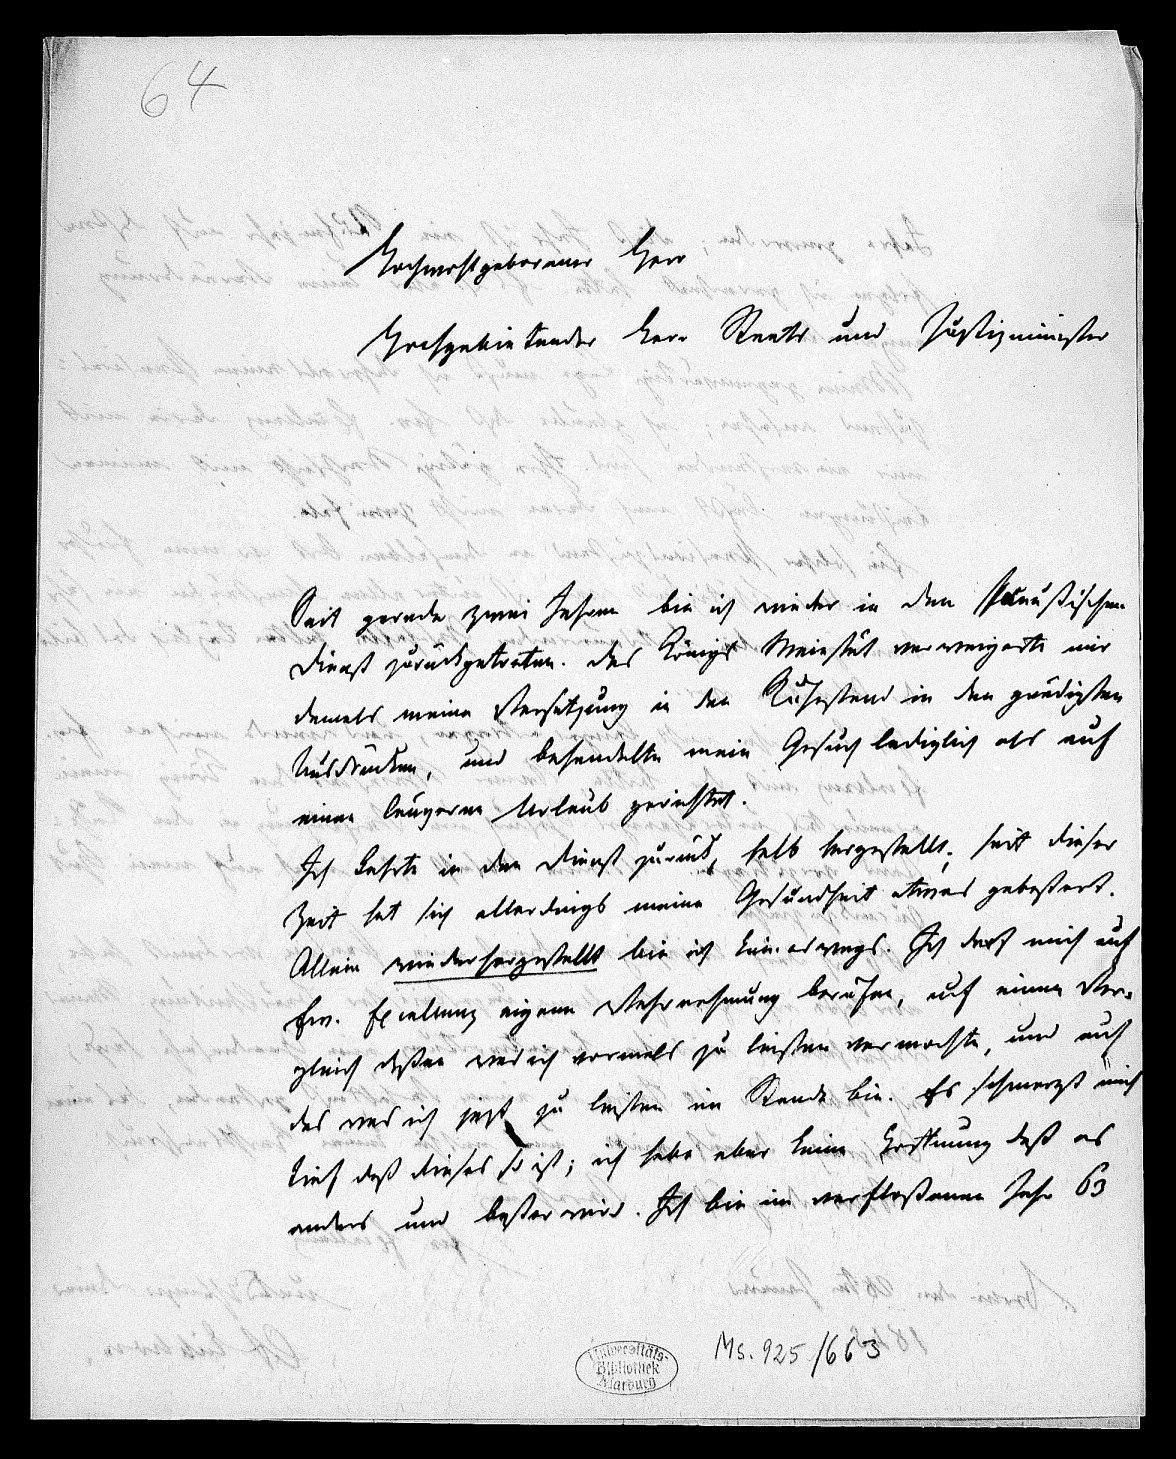 64
Hochwohlgeborener Herr
Hochgebietender Herr Staats und Justizminister
Seit gerade zwei Jahren bin ich wieder in den Preußischen
Dienst zurückgetreten. Des Königs Majestät verweigerte mir
damals meine Versetzung in den Ruhestand in den gnädigsten
Ausdrücken, und behandelte mein Gesuch lediglich als auf
einen längeren Urlaub gerichtet.
Ich kehrte in den Dienst zurück, halb hergestellt; seit dieser
Zeit hat sich allerdings meine Gesundheit etwas gebessert.
Allein wiederhergestellt bin ich keineswegs. Ich darf mich auf
Ew. Excellenz eigene Wahrnehmung berufen, auf einen Ver-
gleich deßen was ich vormals zu leisten vermochte, und auf
das was ich jezt zu leisten im Stande bin. Es schmerzt mich
tief daß dieses so ist; ich habe aber keine Hoffnung daß es
anders und beßer wird. Ich bin im verfloßenen Jahr 63
Universitäts-
Bibliothek
Marburg
Ms. 925/663